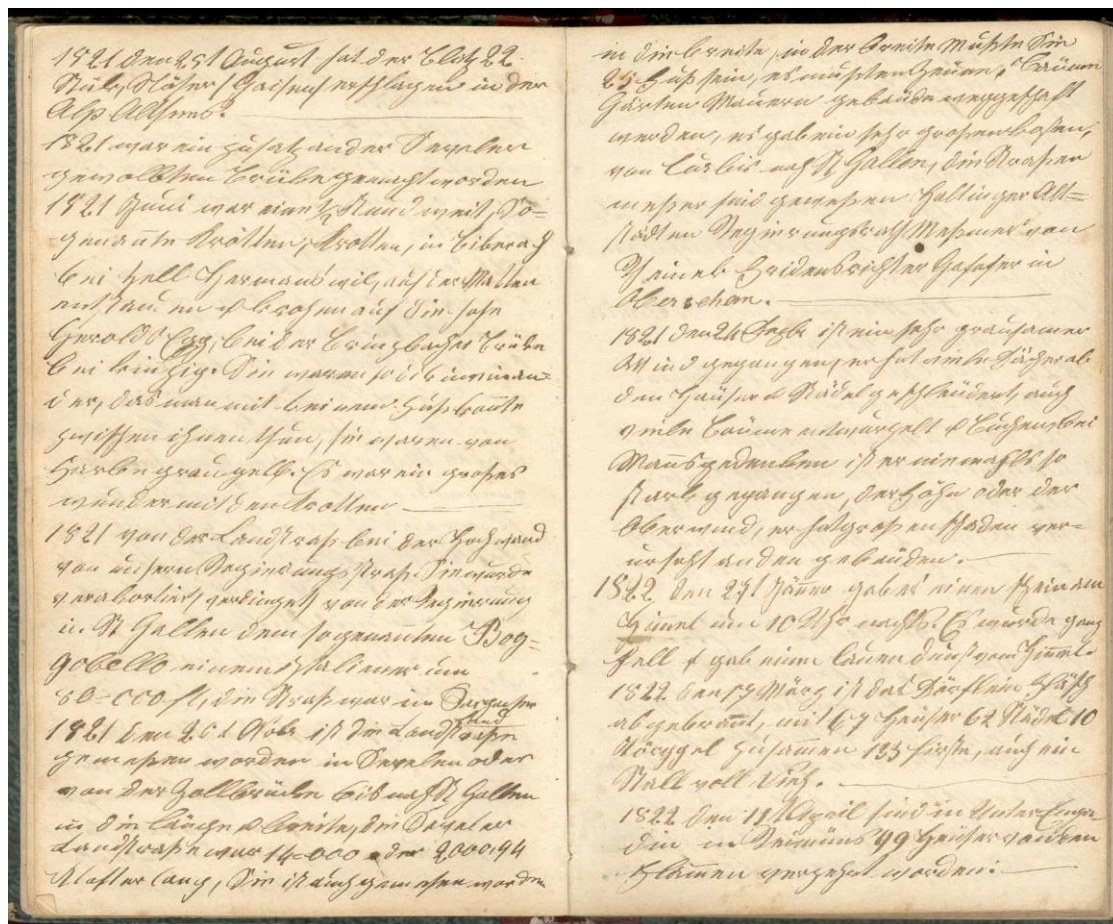 1821 den 25t August hat der Blitz 22
Stük, Stöfer / Gaisen / erschlagen in der
Alp
1821 war ein zusatz an der Sevelen
gewölbten Brüke gemacht worden
1821 Juni war eine ½ Stund weit, So=
genañte Krotten, in Biberach
bei Zell Harmans wil, auf der Matten
entstanden & krochen auf die höhe
Gerolds Egg, bei der Brüke
bei Kinzig. Sie waren so dik in einan=
der, das man mit keinem Fuß konte
zwischen ihnen thun, sie waren von
Farbe grau gelb. Es war ein großes
wunder mit den Krotten
1821 von der Landstraß bei der Hochwand
von unsern Regierungs Straß. Sie wurde
verakortiert, verdinget von der Regierung
in St Gallen dem sogenanten Bog=
gobello einem Italiener um
80=000 fl, die Straß war im Sarganser
Land
1821 den 26t Oktobr ist die Landstraße
gemeßen worden in Sevelen oder
von der Zollbrüke bis nach St Gallen
in die länge & breite, die Seveler
Landstraße war 14=000 oder
Klafter lang, Sie ist auch gemeßen worden
in die breite, in der breite mußte Sie
25 Fuß sein, es mußten Zeüne, Bäume
Gärten Mauern gebäude weggeschaft
werden, es gab ein sehr großen kosten,
von bis nach St Gallen, die Straßen
meßer sind geweßen Haltinger Alt=
städten Regierungsrath Meßmer von
Rheinek Fridensrichter Gafafer in
Oberschan.
1821 den 24 Dezbr ist ein sehr grausamer
Wind gegangen, er hat viele Dächer ab
den Häuser & Städel geschleudert, auch
viele Bäume entwurzelt & Buchen, bei
Mañsgedenken ist er niemahls so
stark gegangen, der Föhn oder der
Oberwind, er hat großen schaden ver=
ursacht an den gebäuden.
1822 den 29t Jäner gab es einen schein am
Himel um 10 Uhr nachts. Es wurde ganz
hell & gab eine lauen dunst vom Himel.
1822 den 17 März ist das Dörflein
abgebrañt, mit 67 Häuser 62 Städel 10
Törggel zusamen 133 Firste, auch ein
Stall voll Vieh.
1822 den 11 April sind in Unter Enga
din in Remüns 99 Häüser von den
Flamen verzehrt worden.